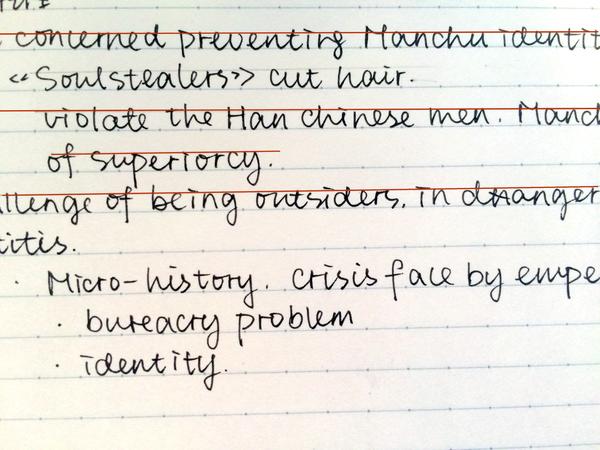 concerned preventing Manchu identit
«Soulstealers» cut hair.
violate the Han chinese men. Manch
of superiorcy.
llenge of being outsiders. in danger
titis.
· Micro-history. crisis face by empe
· bureacry problem
· identity.